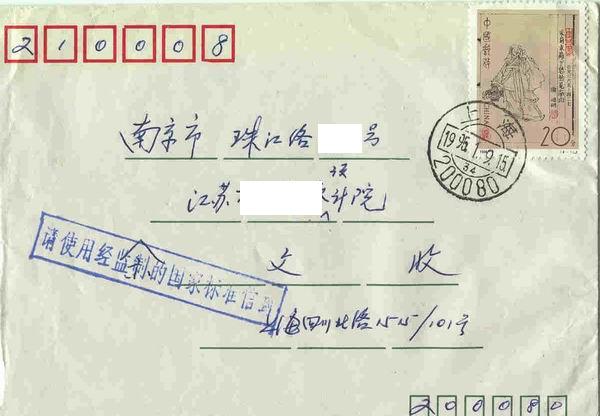 210008
中国邮政
20分
上海
1996.7.9.15
34
200080
南京市 珠江路 号
江苏 设计院
文 收
请使用经监制的国家标准信封
上海四川北路1515/101号
200080